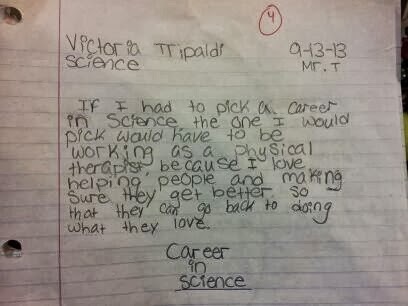 4
Victoria Tripaldi 9-13-13
Science Mr. T
If I had to pick a career
in Science the one I would
pick would have to be
working as a physical
therapist, because I love
helping people and making
sure they get better, so
that they can go back to doing
what they love.
Career
in
science